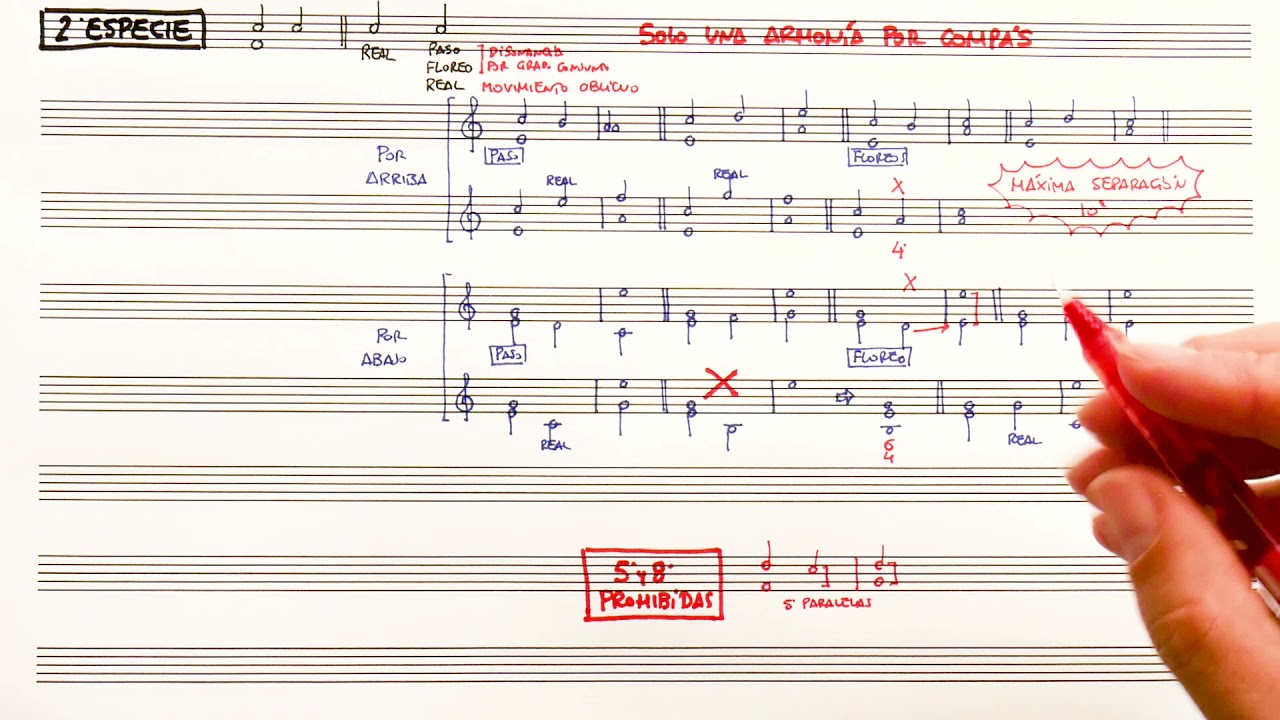 2ª ESPECIE
SOLO UNA ARMONÍA POR COMPÁS
REAL
PASO
FLOREO
REAL
DISONANCIA
POR GRAD. CONJUNTO
MOVIMIENTO OBLICUO
POR
ARRIBA
PASO
FLOREOS
REAL
REAL
X
4ª
MÁXIMA SEPARACIÓN
10ª
POR
ABAJO
PASO
X
FLOREO
REAL
X
6
4
REAL
5ª y 8ª
PROHIBIDAS
5ª PARALELAS